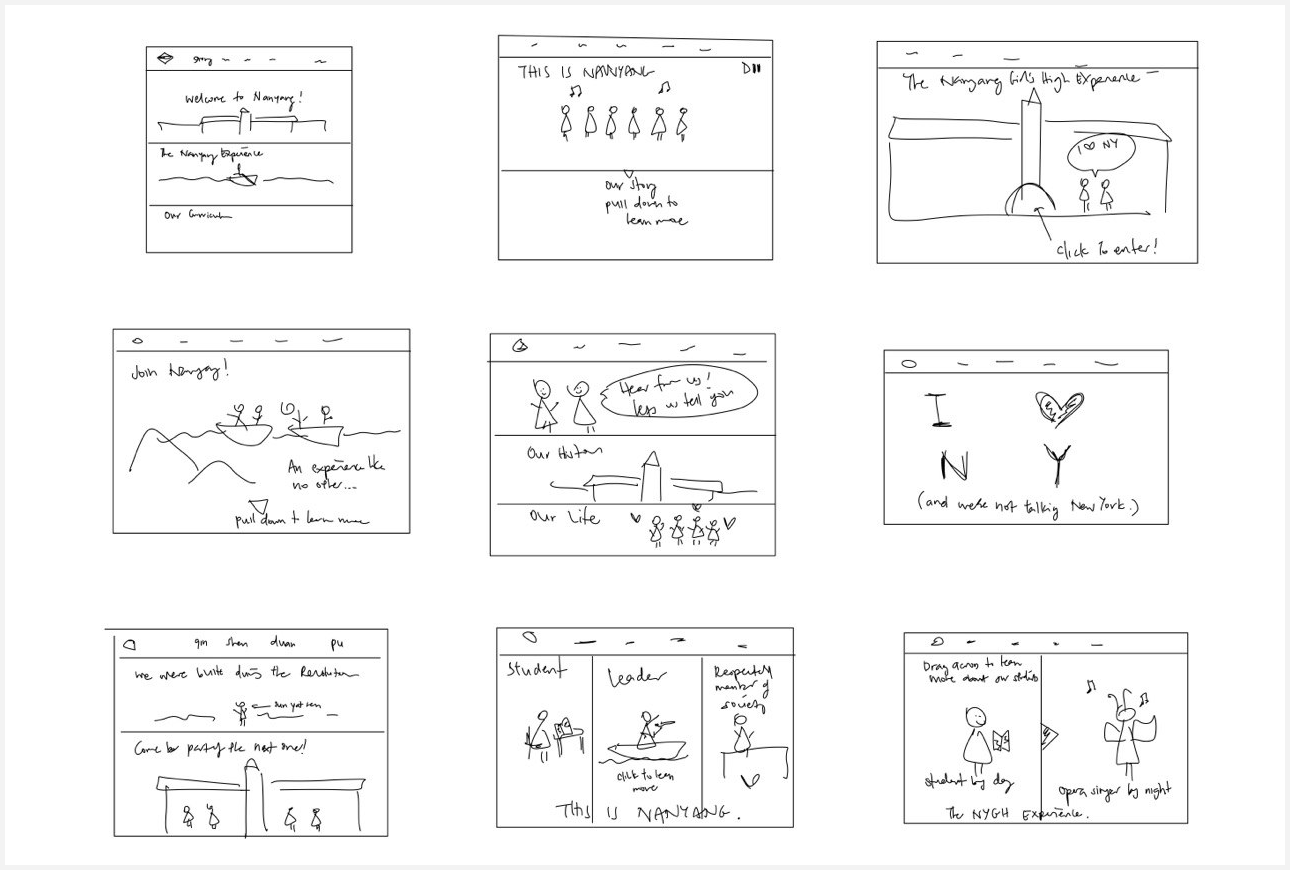 Welcome to Nanyang!
The Nanyang Experience
Our Curriculum
THIS IS NANYANG
our story
pull down to
learn more
The Nanyang Girls High Experience
I ♡ NY
click to enter!
Join Nanyang!
An experience like
no other...
pull down to learn more
Hear from us!
lets us tell you
Our History
Our Life
I
N Y
(and we're not talking New York.)
qin shen duan pu
we were built during the Revolution
sun yat sen
Come be part of the next one!
Student
Leader
Respected
member of
society
click to learn
more
THIS IS NANYANG.
Drag across to learn
more about our students
student by day
opera singer by night
The NYGH Experience.